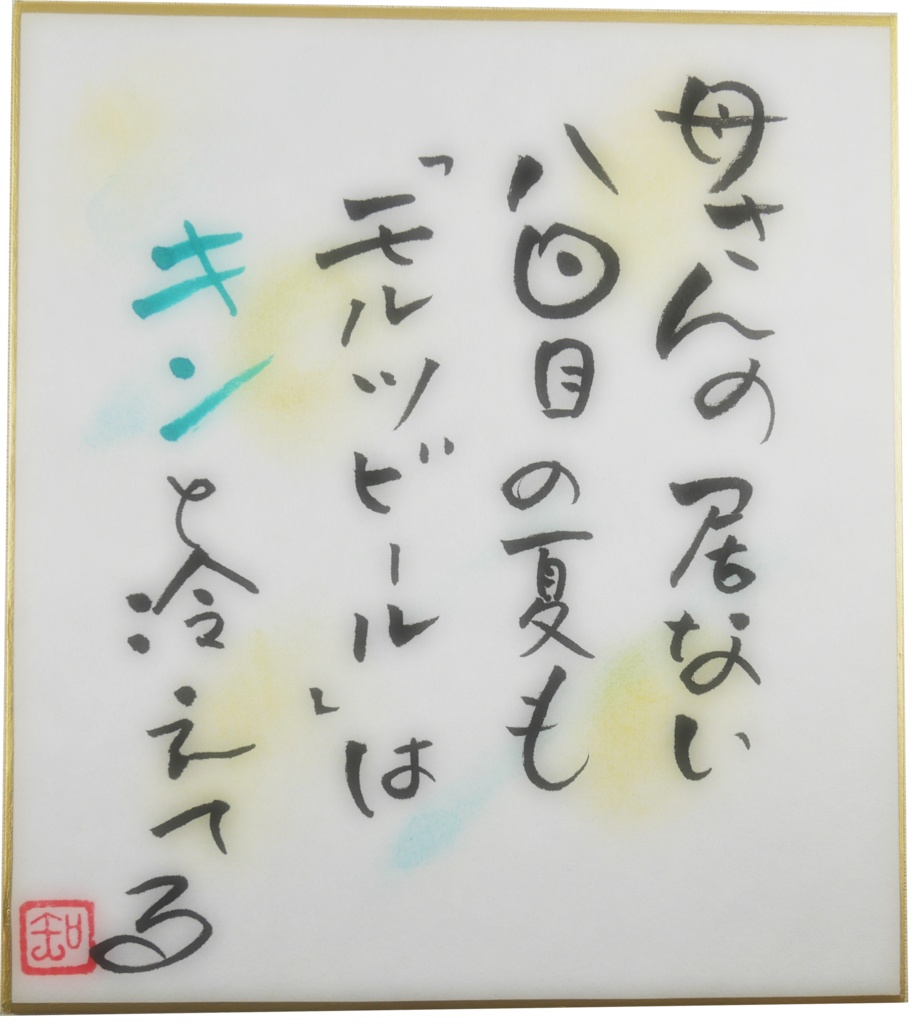 母さんの居ない
八回目の夏も
「モルツビール」は
キンと冷えてる